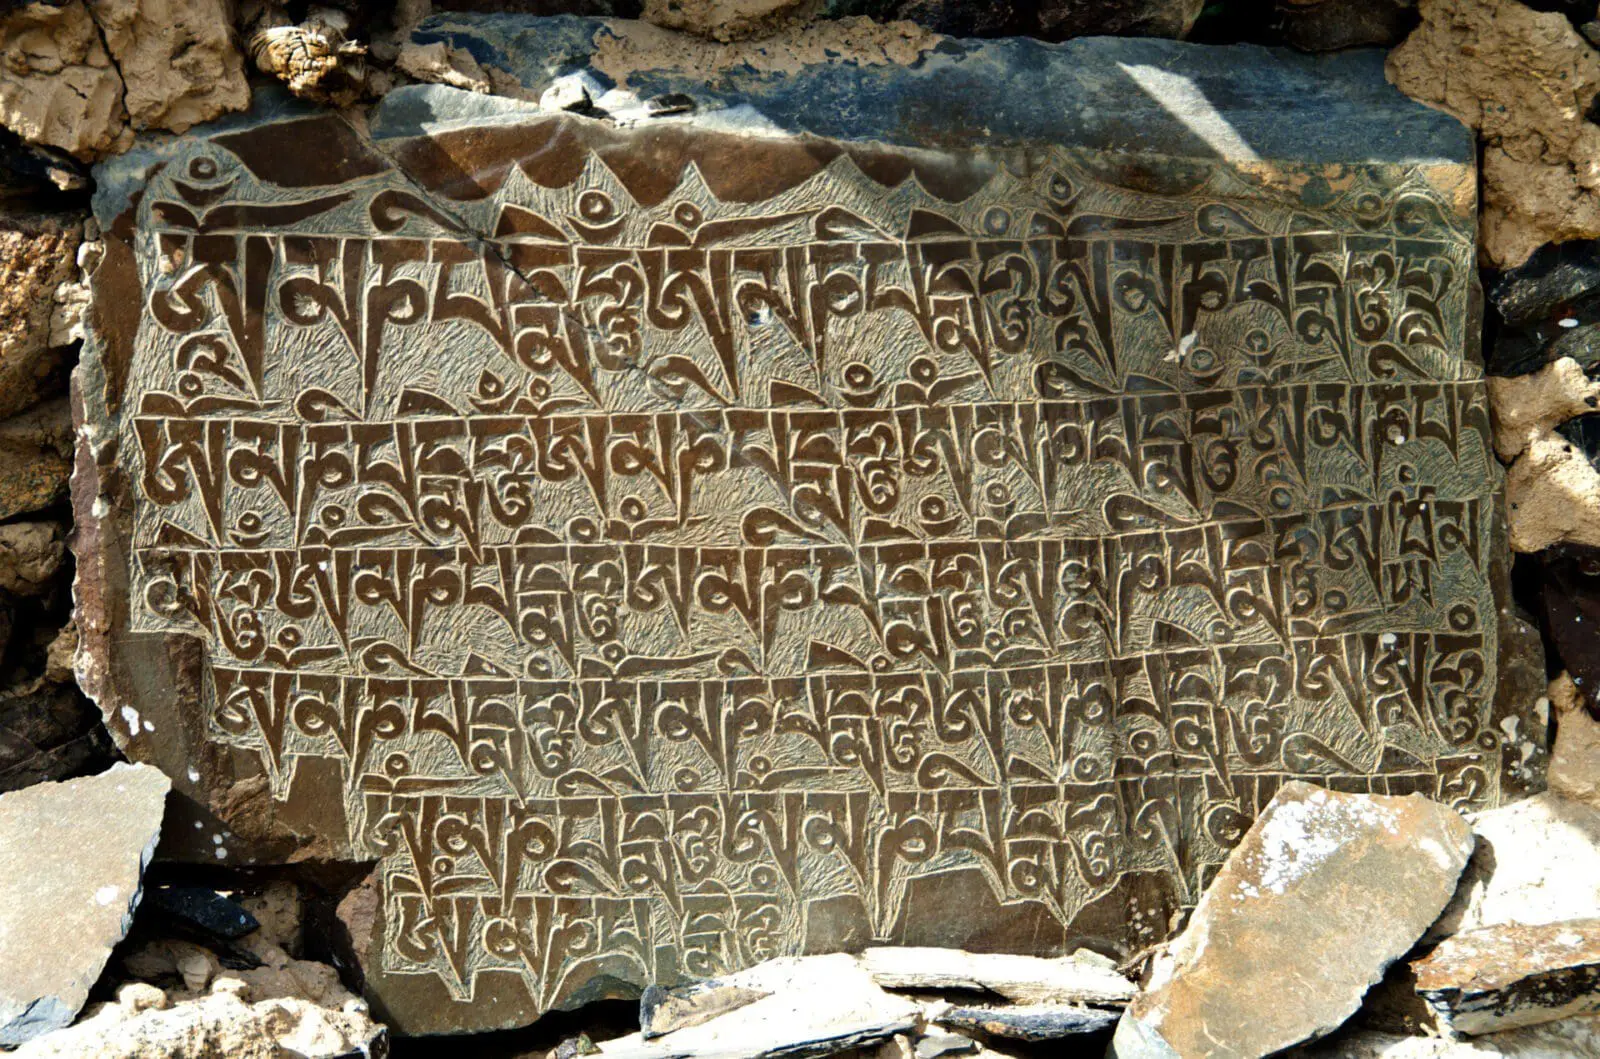 ཨོཾམཎིཔདྨེཧཱུྃཨོཾམཎིཔདྨེཧཱུྃཨོཾམཎིཔདྨེཧཱུྃཧྲཱི
ཨོཾམཎིཔདྨེཧཱུྃཨོཾམཎིཔདྨེཧཱུྃཨོཾམཎིཔདྨེཧཱུྃཨོཾམཎིཔ
དྨེཧཱུྃཨོཾམཎིཔདྨེཧཱུྃཨོཾམཎིཔདྨེཧཱུྃཨོཾམཎིཔདྨེཧཱུྃ
ཨོཾམཎིཔདྨེཧཱུྃཨོཾམཎིཔདྨེཧཱུྃཨོཾམཎིཔདྨེཧཱུྃཨོཾཨཱཿཧཱུྃ
ཨོཾམཎིཔདྨེཧཱུྃཨོཾམཎིཔདྨེཧཱུྃཨོཾམ
ཨོཾམཎིཔདྨེཧཱུྃ